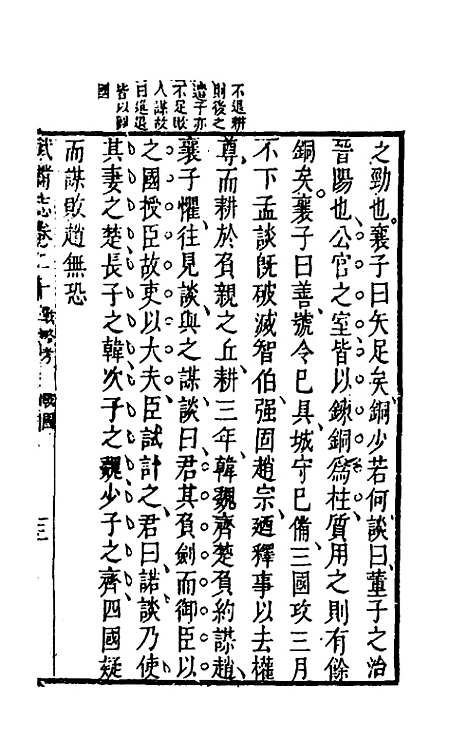 不退耕
則後之
遺子亦
不足敗
人謀故
曰進退
皆以歸
國
之勁也襄子曰矢足矣銅少若何談曰董子之治
晉陽也公宮之室皆以鍊銅爲柱質用之則有餘
銅矣襄子曰善號令已具城守已備三國攻三月
不下孟談既破滅智伯强固趙宗迺釋事以去權
尊而耕於負親之丘耕三年韓魏齊楚負約謀趙
襄子懼往見談與之謀談曰君其負劍而御臣以
之國授臣故吏以大夫臣試計之君曰諾談乃使
其妻之楚長子之韓次子之魏少子之齊四國疑
而謀敗趙無恐
武備志卷二十 戰略考 戰國 三